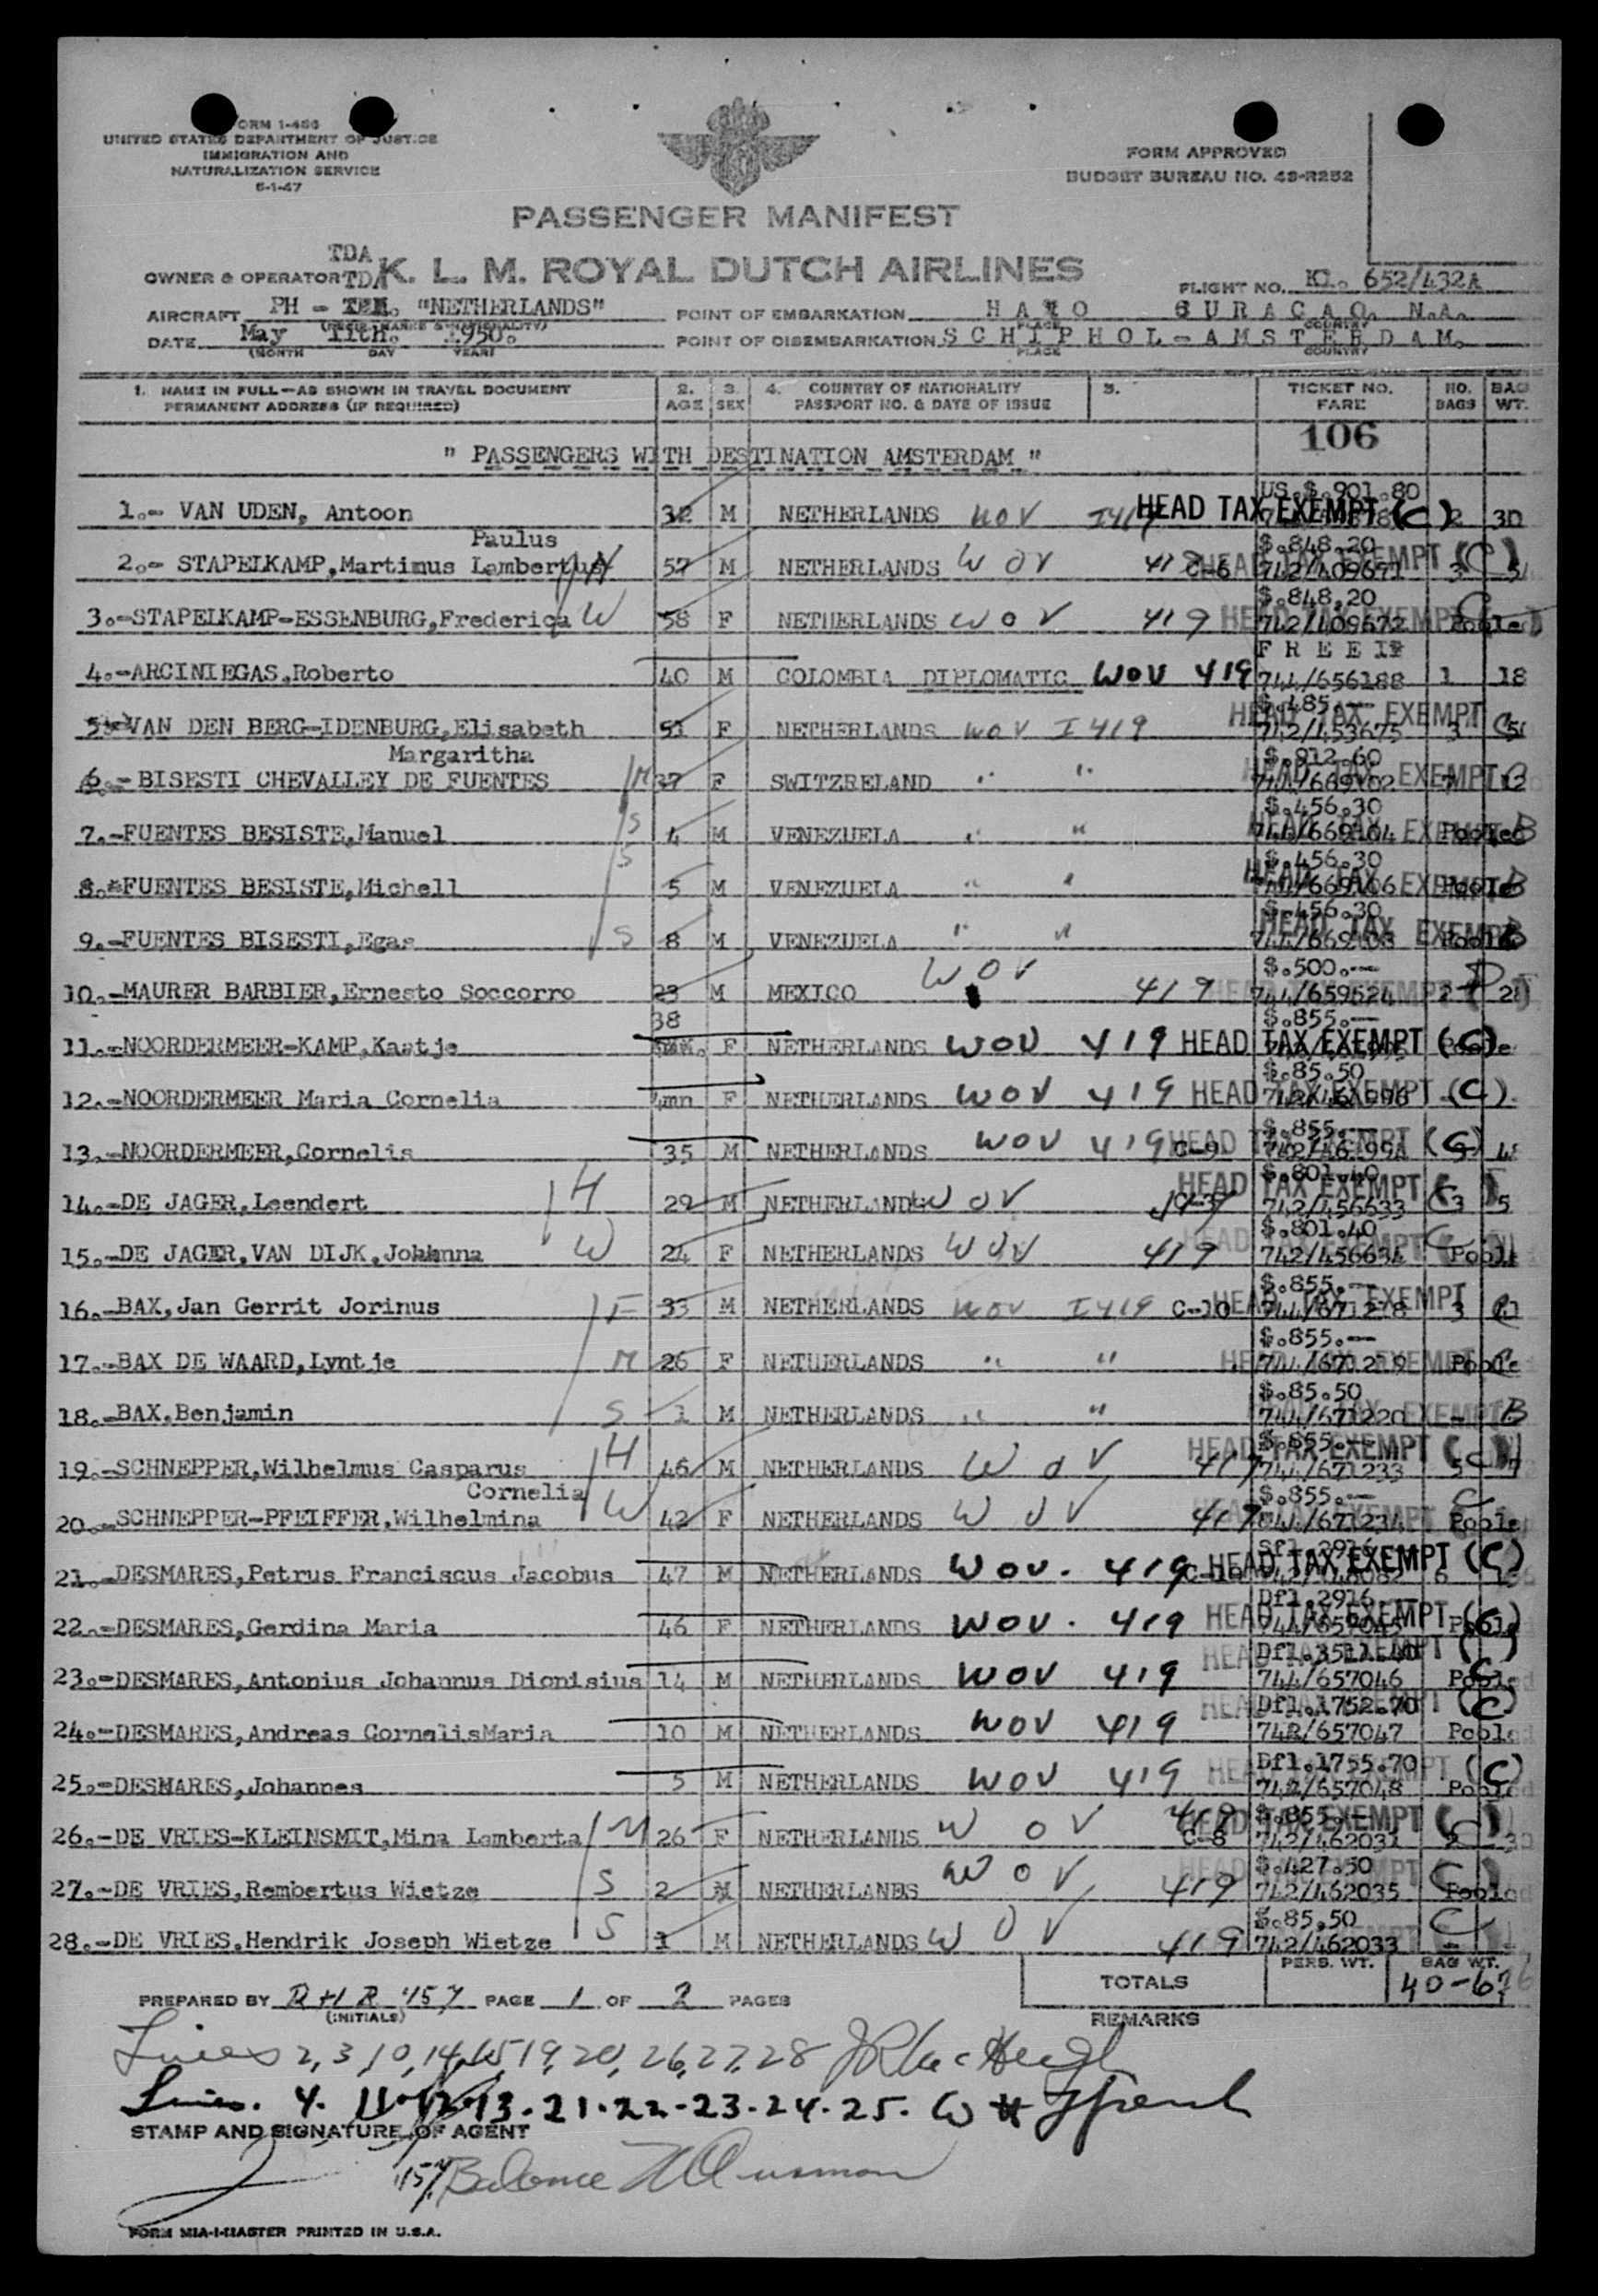 FORM 1-466
UNITED STATES DEPARTMENT OF JUSTICE
IMMIGRATION AND
NATURALIZATION SERVICE
5-1-47
FORM APPROVED
BUDGET BUREAU NO. 43-R252
PASSENGER MANIFEST
TDA
OWNER & OPERATOR TDA K. L. M. ROYAL DUTCH AIRLINES
FLIGHT NO. Kl. 652/432A
AIRCRAFT PH - "NETHERLANDS" POINT OF EMBARKATION HATO CURACAO. N.A.
DATE May 11th. 1950. POINT OF DISEMBARKATION SCHIPHOL-AMSTERDAM.
(MONTH DAY YEAR) PLACE COUNTRY
1. NAME IN FULL—AS SHOWN IN TRAVEL DOCUMENT PERMANENT ADDRESS (IF REQUIRED) 2. AGE 3. SEX 4. COUNTRY OF NATIONALITY PASSPORT NO. & DATE OF ISSUE 5. TICKET NO. FARE NO. BAGS BAG WT.
106
" PASSENGERS WITH DESTINATION AMSTERDAM "
US.$.901.80
1.- VAN UDEN, Antoon 32 M NETHERLANDS WOV I419 HEAD TAX EXEMPT (C) 2 30
Paulus $.848.20
2.- STAPELKAMP,Martimus Lambertus H 57 M NETHERLANDS WOV 419 C-6 HEAD TAX EXEMPT (C) 742/409671 3
$.848.20
3.-STAPELKAMP-ESSENBURG,Frederica W 58 F NETHERLANDS WOV 419 HEAD TAX EXEMPT C 742/409672 Pooled
FREE
4.-ARCINIEGAS,Roberto 40 M COLOMBIA DIPLOMATIC WOV 419 744/656188 1 18
$.485.--
5.-VAN DEN BERG-IDENBURG,Elisabeth 51 F NETHERLANDS WOV I419 HEAD TAX EXEMPT C 742/453675 3
Margaritha $.912.60
6.- BISESTI CHEVALLEY DE FUENTES M 37 F SWITZRELAND " " HEAD TAX EXEMPT 744/669102
$.456.30
7.-FUENTES BESISTE,Manuel S 4 M VENEZUELA " " HEAD TAX EXEMPT B 744/669104 Pooled
$.456.30
8.-FUENTES BESISTE,Michell S 5 M VENEZUELA " " HEAD TAX EXEMPT B 744/669106 Pooled
$.456.30
9.-FUENTES BISESTI,Egas S 8 M VENEZUELA " " HEAD TAX EXEMPT B 744/669103 Pooled
$.500.--
10.-MAURER BARBIER,Ernesto Soccorro 23 M MEXICO WOV 419 HEAD TAX EXEMPT 744/659624 2
38 $.855.--
11.-NOORDERMEER-KAMP,Kaatje F NETHERLANDS WOV 419 HEAD TAX EXEMPT (C)
$.85.50
12.-NOORDERMEER Maria Cornelia 4mn F NETHERLANDS WOV 419 HEAD TAX EXEMPT (C)
$.855.--
13.-NOORDERMEER,Cornelis 35 M NETHERLANDS WOV 419 C-9 HEAD TAX EXEMPT (C)
$.801.40
14.-DE JAGER,Leendert H 29 M NETHERLANDS WOV C-3 HEAD TAX EXEMPT (C) 742/456633 3
$.801.40
15.-DE JAGER,VAN DIJK,Johanna W 24 F NETHERLANDS WOV 419 HEAD TAX EXEMPT C 742/456634 Pooled
$.855.--
16.-BAX,Jan Gerrit Jorinus F 33 M NETHERLANDS WOV I419 C-10 HEAD TAX EXEMPT 744/671218 3
$.855.--
17.-BAX DE WAARD,Lyntje M 26 F NETHERLANDS " " HEAD TAX EXEMPT 744/671219 Pooled
$.85.50
18.-BAX,Benjamin S 1 M NETHERLANDS " " HEAD TAX EXEMPT B 744/671220 -
$.855.--
19.-SCHNEPPER,Wilhelmus Casparus H 46 M NETHERLANDS WOV 419 HEAD TAX EXEMPT (C) 744/671233 5
Cornelia $.855.--
20.-SCHNEPPER-PFEIFFER,Wilhelmina W 42 F NETHERLANDS WOV 419 HEAD TAX EXEMPT C 744/671234 Pooled
21.-DESMARES,Petrus Franciscus Jacobus 47 M NETHERLANDS WOV. 419 HEAD TAX EXEMPT (C) 6
Dfl.2916
22.-DESMARES,Gerdina Maria 46 F NETHERLANDS WOV. 419 HEAD TAX EXEMPT (C) 744/657045 Pooled
Dfl.3511.40
23.-DESMARES,Antonius Johannus Dionisius 14 M NETHERLANDS WOV 419 HEAD TAX EXEMPT (C) 744/657046 Pooled
Dfl.1752.70
24.-DESMARES,Andreas CornelisMaria 10 M NETHERLANDS WOV 419 HEAD TAX EXEMPT (C) 742/657047 Pooled
Dfl.1755.70
25.-DESMARES,Johannes 5 M NETHERLANDS WOV 419 HEAD TAX EXEMPT (C) 742/657048 Pooled
$.855.--
26.-DE VRIES-KLEINSMIT,Mina Lamberta M 26 F NETHERLANDS WOV 419 C-8 HEAD TAX EXEMPT (C) 742/462031 2 30
$.427.50
27.-DE VRIES,Rembertus Wietze S 2 M NETHERLANDS WOV 419 C 742/462035 Pooled
$.85.50
28.-DE VRIES,Hendrik Joseph Wietze S 1 M NETHERLANDS WOV 419 C 742/462033 -
TOTALS PERS. WT. BAG WT.
40-67
PREPARED BY PAGE 1 OF 2 PAGES
(INITIALS)
REMARKS
Lines 2,3,10,14,15,19,20,26,27,28
Lines. 4. 11.12.13.21.22.23.24.25.
STAMP AND SIGNATURE OF AGENT
Balance
FORM MIA-I-MASTER PRINTED IN U.S.A.